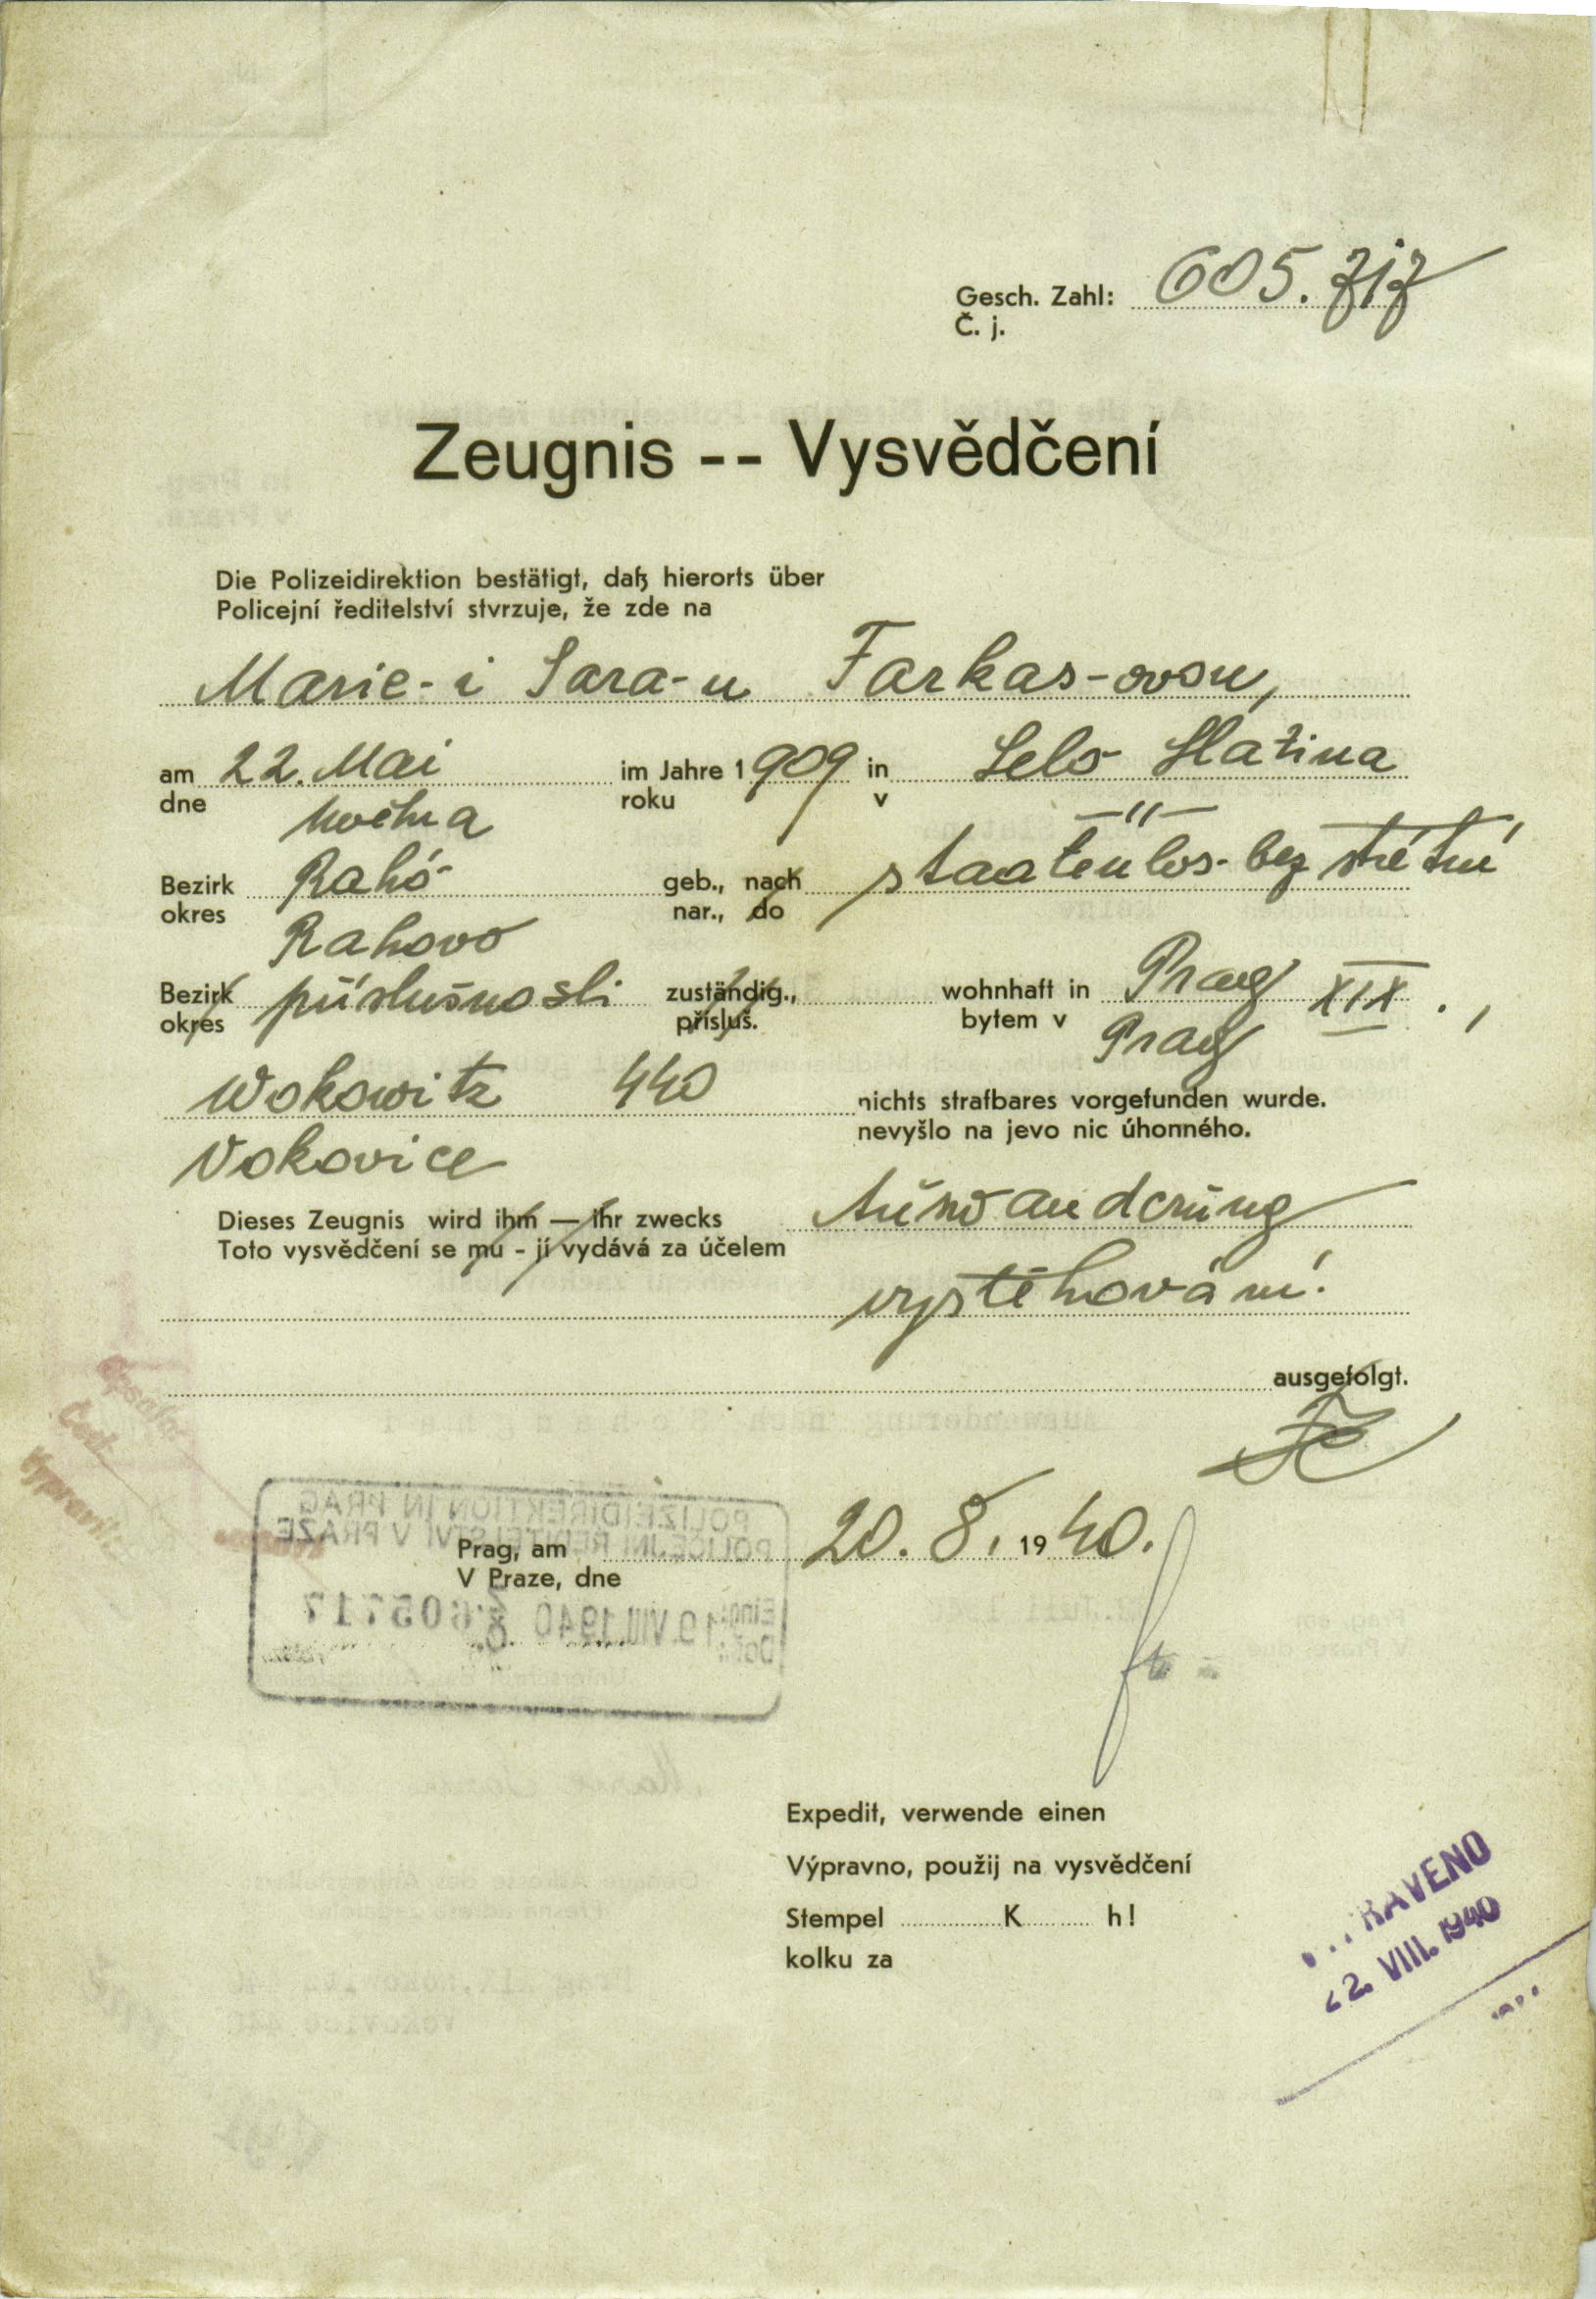 Gesch. Zahl: 605.717
Č. j.
Zeugnis -- Vysvědčení
Die Polizeidirektion bestätigt, daß hierorts über
Policejní ředitelství stvrzuje, že zde na
Marie-i Sara-u Farkas-ovou,
am 22. Mai im Jahre 1909 in Selo Slatina
dne května roku v —"—
Bezirk Rahó geb., nach staatenlos - bez státní
okres Rahovo nar., do
Bezirk příslušnosti zuständig., wohnhaft in Prag XIX.,
okres přísluš. bytem v Prag
Wokowitz 440 nichts strafbares vorgefunden wurde.
Vokovice nevyšlo na jevo nic úhonného.
Dieses Zeugnis wird ihm — ihr zwecks Auswanderung
Toto vysvědčení se mu - jí vydává za účelem
vystěhování.
ausgefolgt.
POLIZEIDIREKTION IN PRAG
POLICEJNÍ ŘEDITELSTVÍ V PRAZE
Prag, am 20. 8. 1940.
V Praze, dne
Eing: 19. VIII. 1940 605717
Došlo:
Expedit, verwende einen
Výpravno, použij na vysvědčení
Stempel K h!
kolku za
22. VIII. 1940